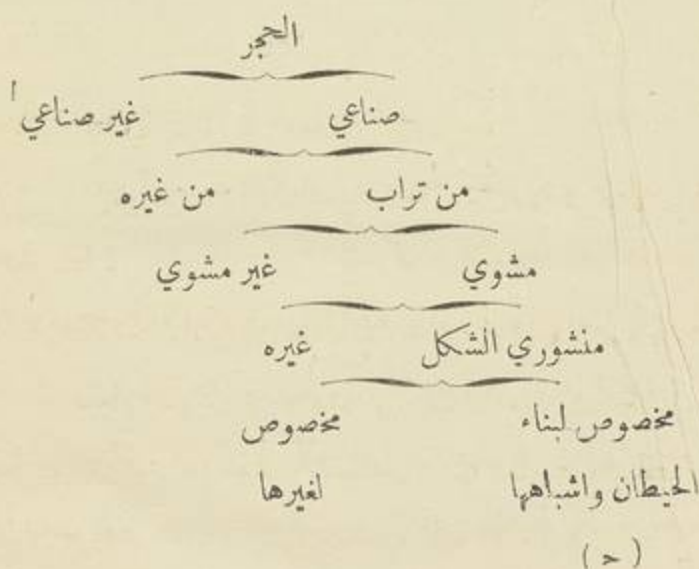 الحجر
صناعي غير صناعي
من تراب من غيره
مشوي غير مشوي
منشوري الشكل غيره
مخصوص لبناء مخصوص
الحيطان واشباهها لغيرها
(ح)